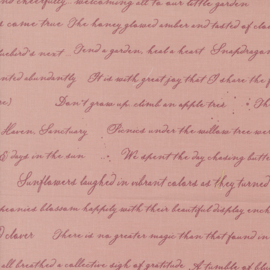 and cheerfully welcoming all to our little garden
s come true The honey glazed amber and tasted of clover
luebird's nest Tend a garden, heal a heart Snapdragons
nted abundantly It is with great joy that I share the f
ee) Don't grow up, climb an apple tree Th
Haven, Sanctuary Picnics under the willow tree were
& days in the sun We spent the day chasing butter
Sunflowers laughed in vibrant colors as they turned
peonies blossom happily with their beautiful display ench
d clover There is no greater magic than that found in
all breathed a collective sigh of gratitude A tumble of bl